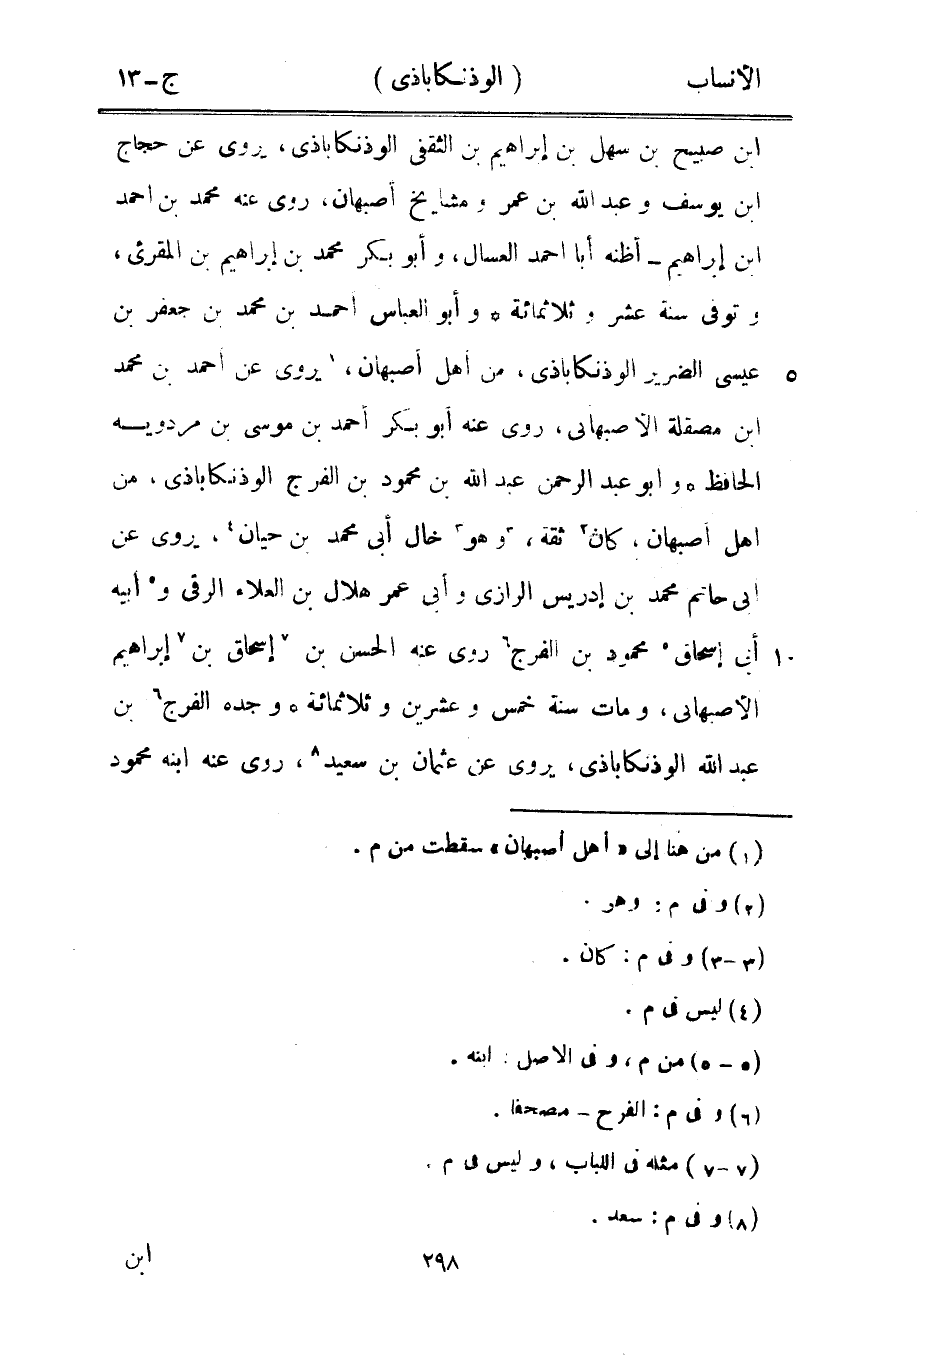 الأنساب ( الوذنكاباذى ) ج - ١٣
ابن صبيح بن سهل بن إبراهيم بن الثقفى الوذنكاباذى، يروى عن حجاج
ابن يوسف و عبد الله بن عمر و مشايخ أصبهان، روى عنه محمد بن احمد
ابن إبراهيم - أظنه أبا احمد العسال، و أبو بكر محمد بن إبراهيم بن المقرئ،
و توفى سنة عشر و ثلاثمائة ٥ و أبو العباس احمد بن محمد بن جعفر بن
٥ عيسى الضرير الوذنكاباذى، من أهل أصبهان،١ يروى عن أحمد بن محمد
ابن مصقلة الأصبهانى، روى عنه أبو بكر أحمد بن موسى بن مردويه
الحافظ ٥ و ابو عبد الرحمن عبد الله بن محمود بن الفرج الوذنكاباذى، من
اهل أصبهان، كان٢ ثقة، ٣و هو٣ خال أبى محمد بن حيان٤، يروى عن
ابى حاتم محمد بن إدريس الرازى و أبى عمر هلال بن العلاء الرقى و٥ أبيه
١٠ أبى إسحاق٥ محمود بن الفرج٦ روى عنه الحسن بن ٧إسحاق بن٧ إبراهيم
الأصبهانى، و مات سنة خمس و عشرين و ثلاثمائة ٥ و جده الفرج٦ بن
عبد الله الوذنكاباذى، يروى عن عثمان بن سعيد٨، روى عنه ابنه محمود
(١) من هنا إلى « أهل أصبهان » سقطت من م .
(٢) و فى م : وهو .
(٣-٣) و فى م : كان .
(٤) ليس فى م .
(٥ - ٥) من م ، و فى الاصل : ابنه .
(٦) و فى م : الفرح - مصحفا .
(٧-٧) مثله فى اللباب ، و ليس فى م .
(٨) و فى م : سعد .
٢٩٨ ابن